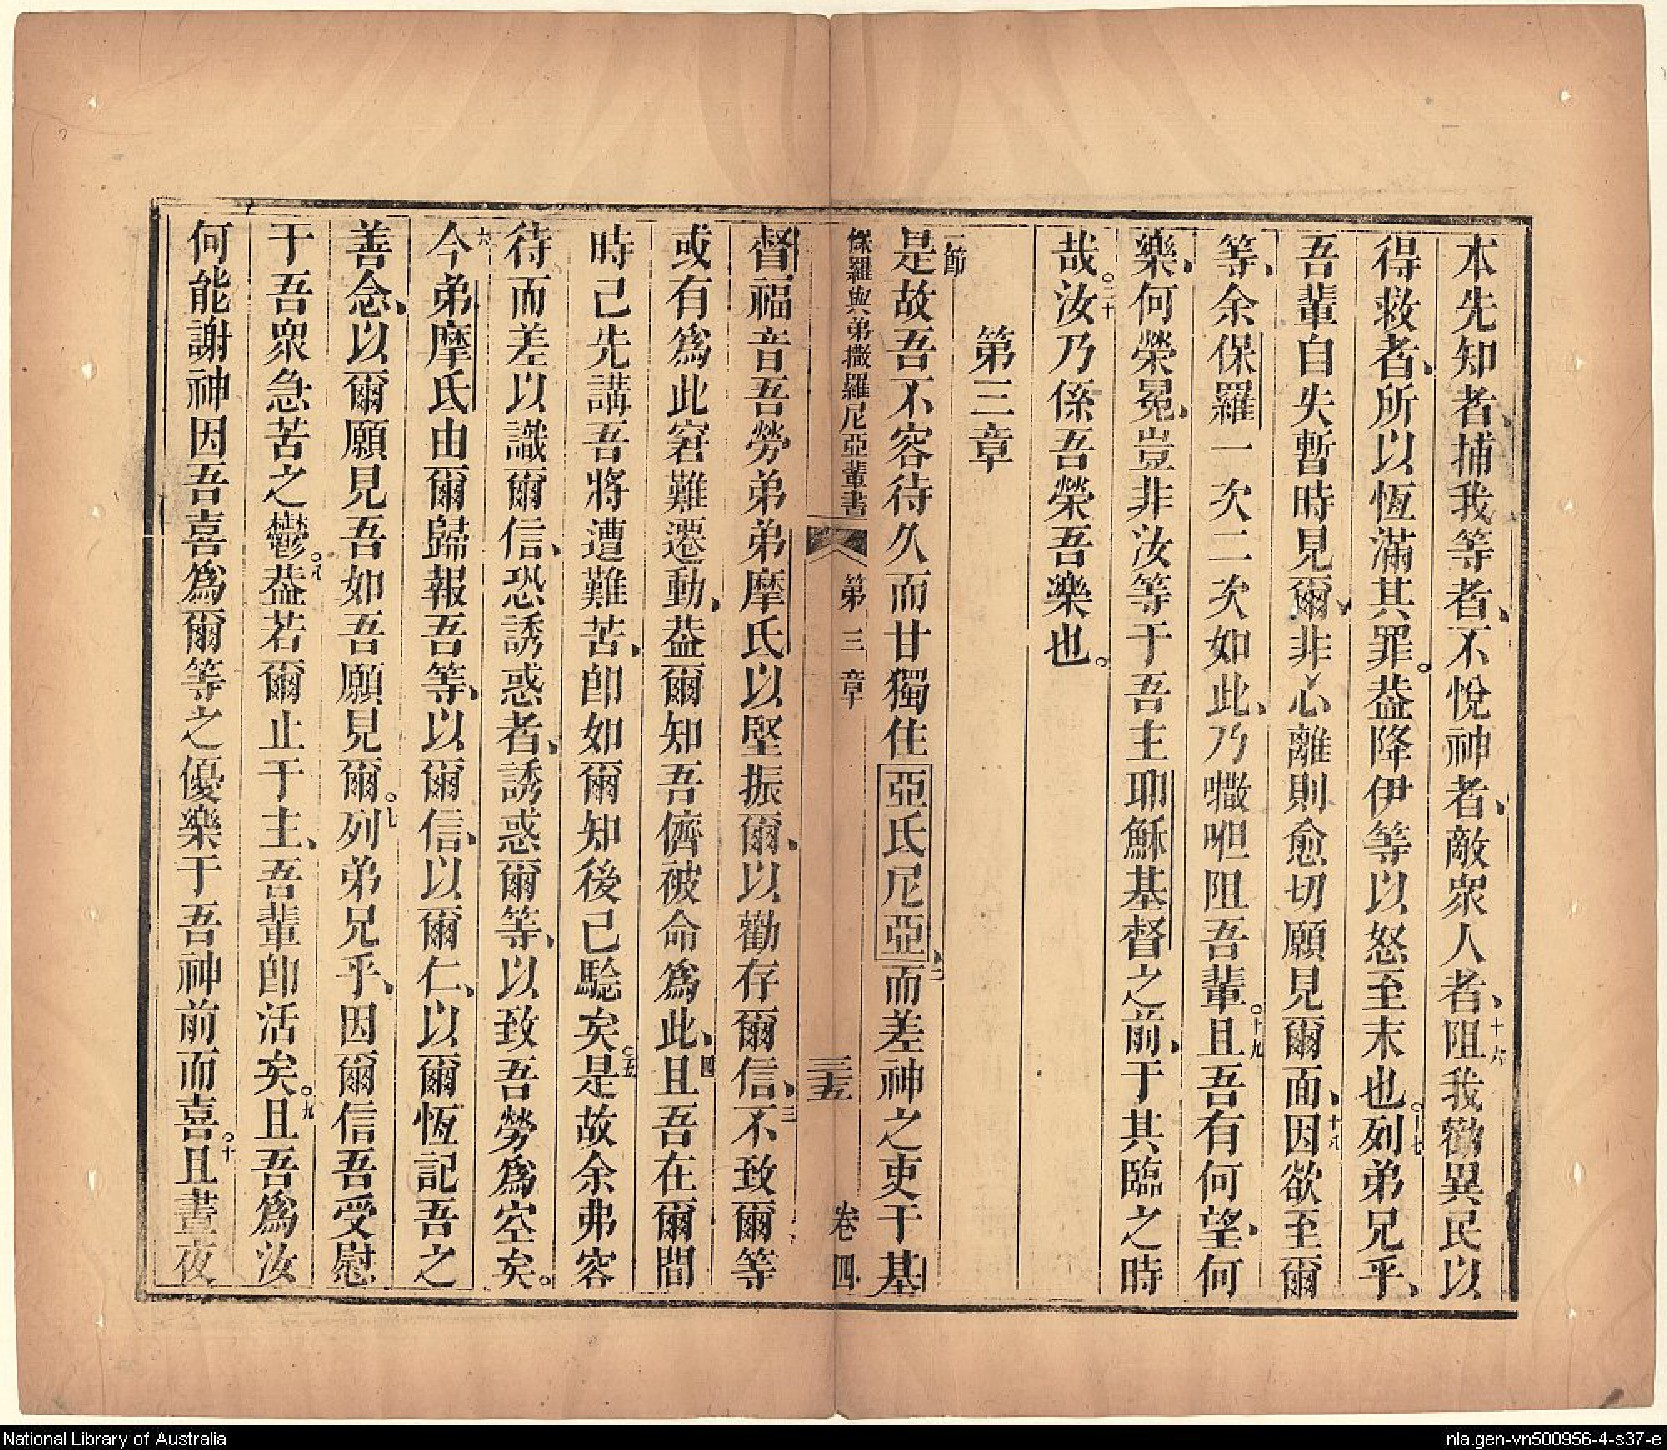 本先知者、捕我等者、不悅神者、敵眾人者、十六阻我勸異民以
得救者、所以恆滿其罪。葢降伊等以怒至末也。十七列弟兄乎、
吾輩自失暫時見爾、非心離則愈切願見爾面、十八因欲至爾
等、余保羅一次二次如此、乃𠹌呾阻吾輩。十九且吾有何望、何
樂、何榮冕、豈非汝等于吾主耶穌基督之前、于其臨之時
哉。二十汝乃係吾榮吾樂也。
第三章
一節是故吾不容待久而甘獨住亞氏尼亞、二而差神之吏于基
保羅與弟撒羅尼亞輩書 第三章 三五 卷四
督福音吾勞弟弟摩氏以堅振爾、以勸存爾信、三不致爾等
或有為此窘難遷動、葢爾知吾儕被命為此、四且吾在爾間
時已先講吾將遭難苦、即如爾知後已驗矣。五是故余弗容
待而差以識爾信、恐誘惑者、誘惑爾等、以致吾勞為空矣。
六今弟摩氏由爾歸報吾等、以爾信、以爾仁、以爾恆記吾之
善念、以爾願見吾如吾願見爾。七列弟兄乎、因爾信吾受慰
于吾眾急苦之鬱。八葢若爾止于主、吾輩即活矣。九且吾為汝
何能謝神因吾喜為爾等之優樂于吾神前而喜。十且晝夜